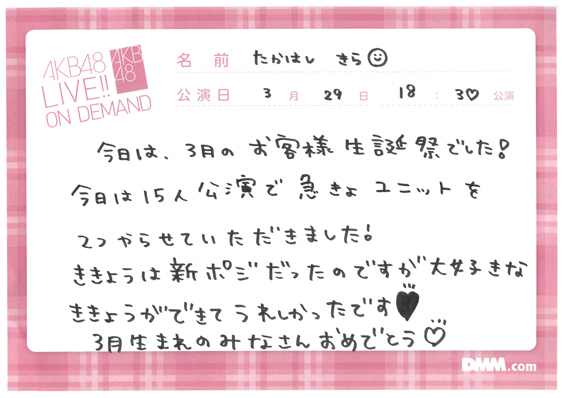 AKB48
LIVE!!
ON DEMAND
AKB
48
名前 たかはし きら
公演日 3月29日 18:30公演
今日は、3月のお客様生誕祭でした!
今日は15人公演で急きょユニットを
2つやらせていただきました!
ききょうは新ポジだったのですが大好きな
ききょうができてうれしかったです♥
3月生まれのみなさんおめでとう♡
DMM.com